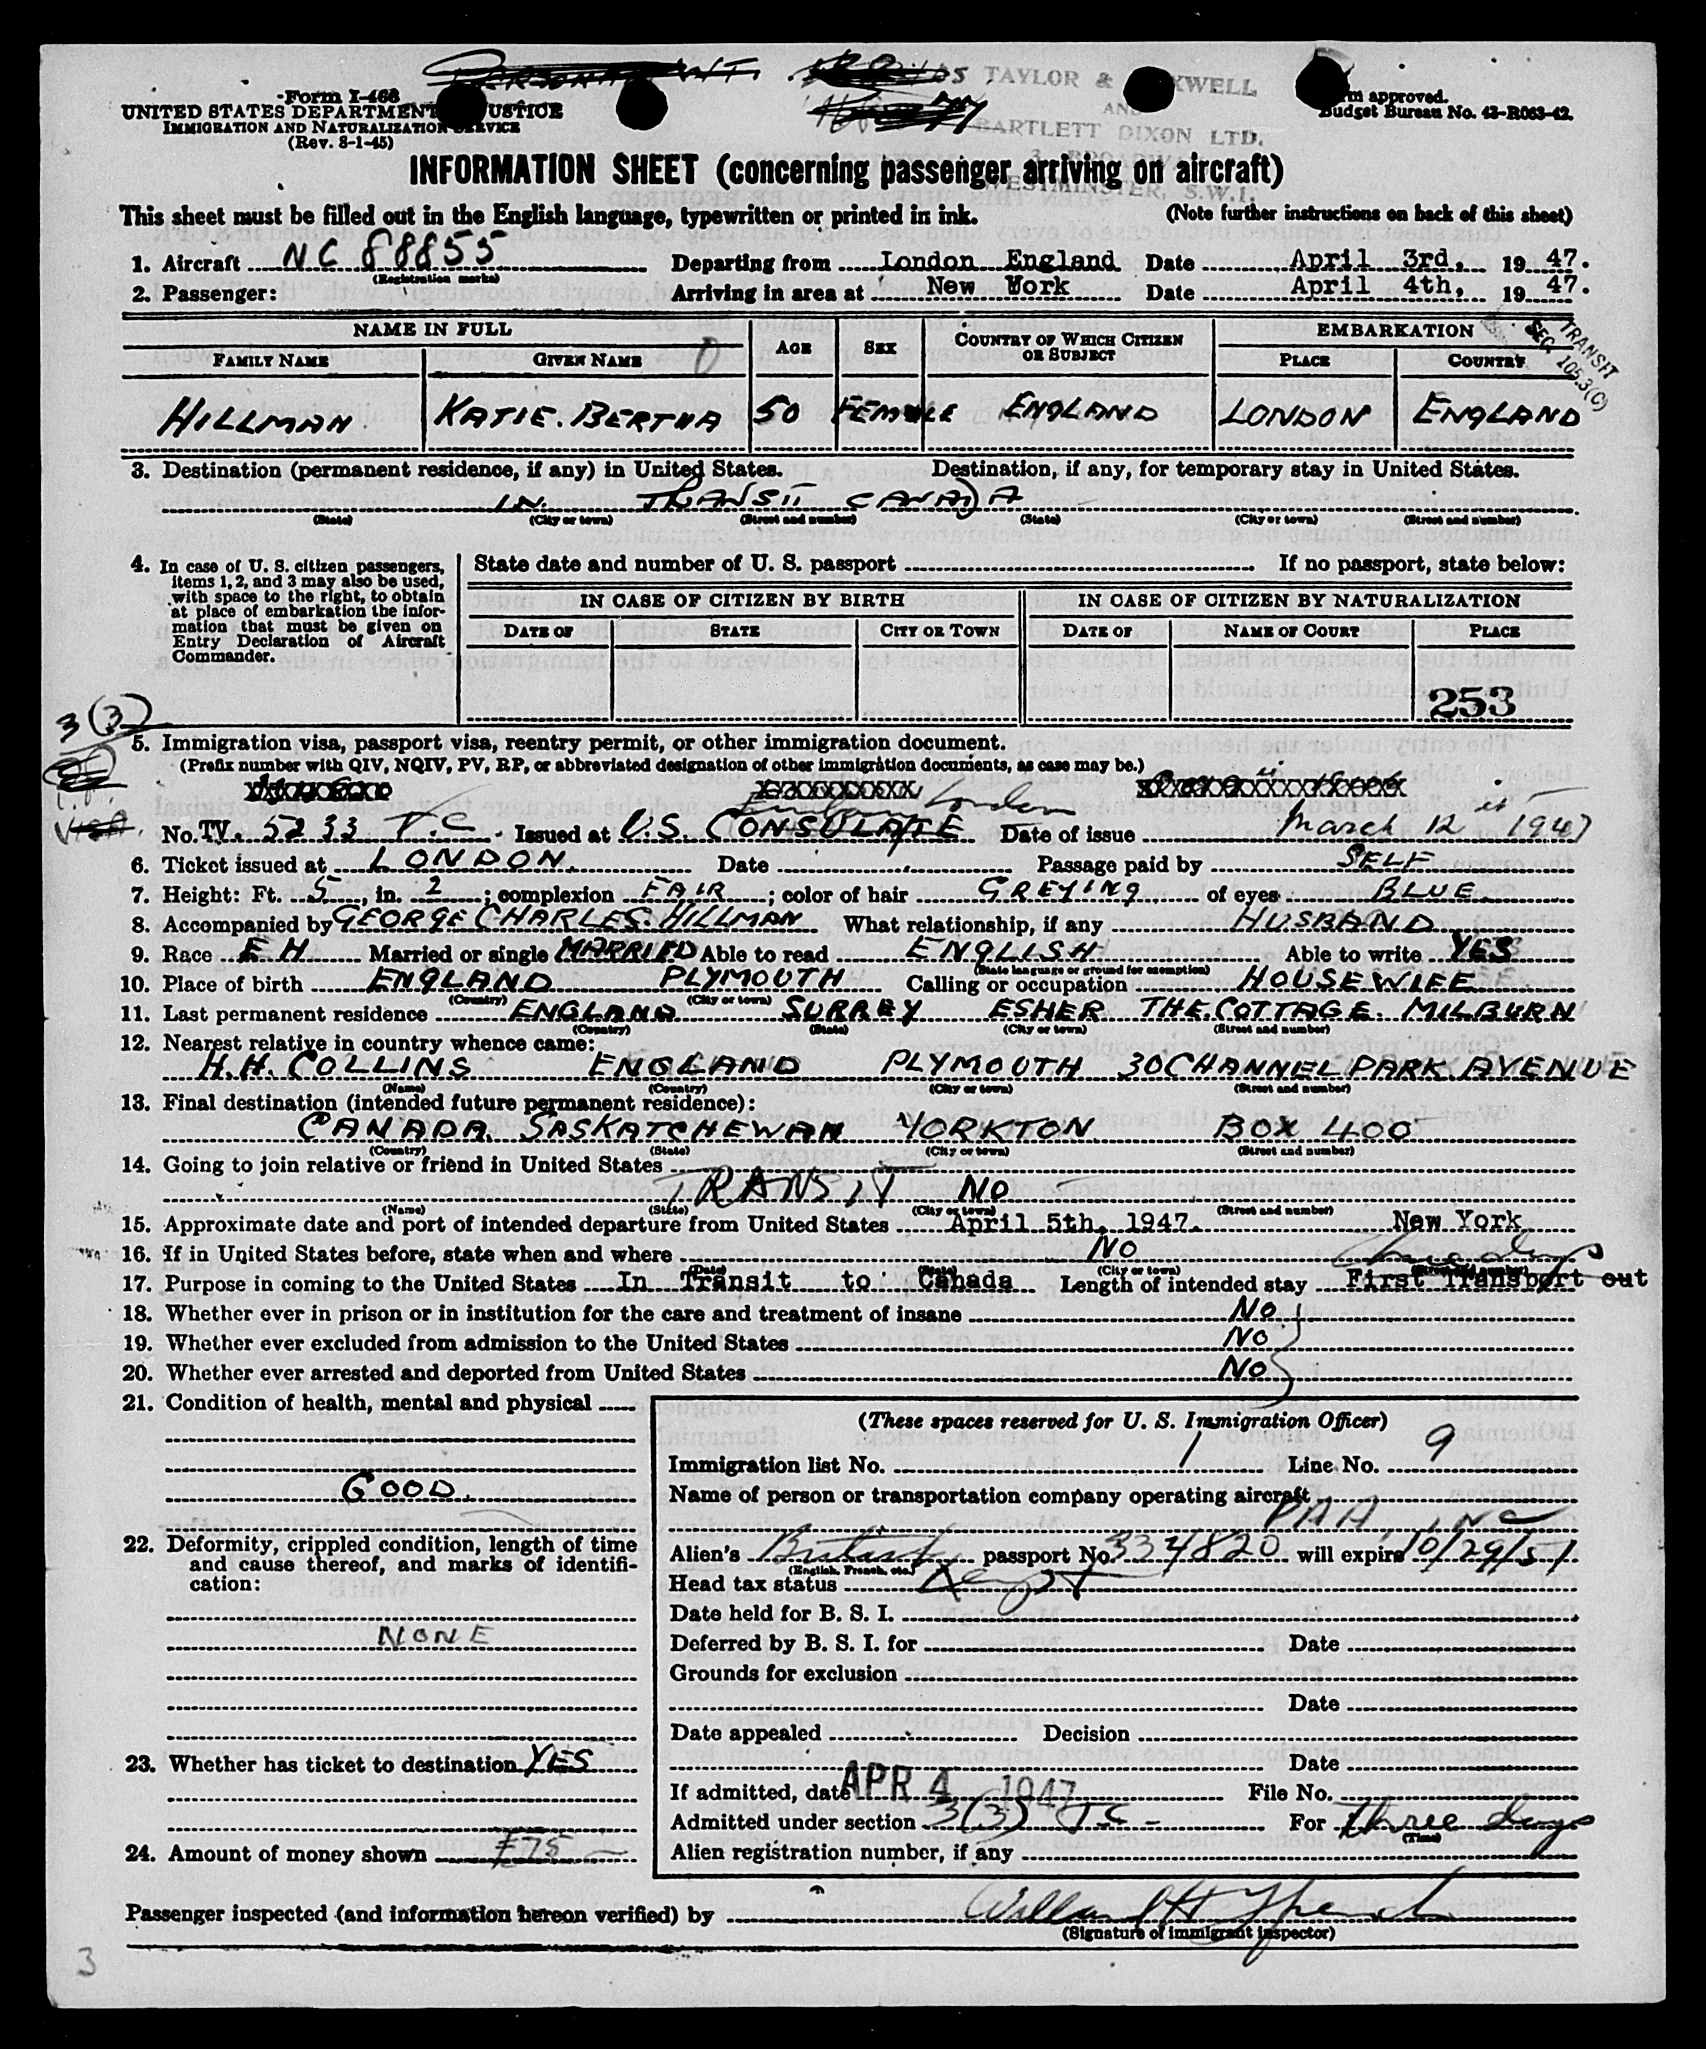 TAYLOR &
AND
BARTLETT DIXON LTD.
WESTMINSTER, S.W.1.
Form I-468
UNITED STATES DEPARTMENT
IMMIGRATION AND NATURALIZATION SERVICE
(Rev. 8-1-45)
approved.
Budget Bureau No. 43-R063-42.
INFORMATION SHEET (concerning passenger arriving on aircraft)
This sheet must be filled out in the English language, typewritten or printed in ink. (Note further instructions on back of this sheet)
1. Aircraft NC 88855 Departing from London England Date April 3rd, 1947.
(Registration marks)
2. Passenger: Arriving in area at New York Date April 4th, 1947.
NAME IN FULL AGE SEX COUNTRY OF WHICH CITIZEN OR SUBJECT EMBARKATION
TRANSIT SEC. 105.3(C)
FAMILY NAME GIVEN NAME PLACE COUNTRY
HILLMAN KATIE. BERTHA 50 FEMALE ENGLAND LONDON ENGLAND
3. Destination (permanent residence, if any) in United States. Destination, if any, for temporary stay in United States.
IN TRANSIT CANADA
(State) (City or town) (Street and number) (State) (City or town) (Street and number)
4. In case of U. S. citizen passengers, items 1, 2, and 3 may also be used, with space to the right, to obtain at place of embarkation the information that must be given on Entry Declaration of Aircraft Commander.
State date and number of U. S. passport If no passport, state below:
IN CASE OF CITIZEN BY BIRTH IN CASE OF CITIZEN BY NATURALIZATION
DATE OF STATE CITY OR TOWN DATE OF NAME OF COURT PLACE
253
3(3)
5. Immigration visa, passport visa, reentry permit, or other immigration document.
(Prefix number with QIV, NQIV, PV, RP, or abbreviated designation of other immigration documents, as case may be.)
Embassy London
No. TV. 5233 T.C. Issued at U.S. CONSULATE Date of issue March 12 1947
6. Ticket issued at LONDON. Date Passage paid by SELF
7. Height: Ft. 5, in. 2; complexion FAIR; color of hair GREYING of eyes BLUE.
8. Accompanied by GEORGE CHARLES HILLMAN What relationship, if any HUSBAND
9. Race E H Married or single MARRIED Able to read ENGLISH Able to write YES
(State language or ground for exemption)
10. Place of birth ENGLAND PLYMOUTH Calling or occupation HOUSEWIFE
(Country) (City or town)
11. Last permanent residence ENGLAND SURREY ESHER THE COTTAGE. MILBURN
(Country) (State) (City or town) (Street and number)
12. Nearest relative in country whence came:
H.H. COLLINS ENGLAND PLYMOUTH 30 CHANNEL PARK AVENUE
(Name) (Country) (City or town) (Street and number)
13. Final destination (intended future permanent residence):
CANADA. SASKATCHEWAN YORKTON BOX 400
(Country) (State) (City or town) (Street and number)
14. Going to join relative or friend in United States
TRANSIT NO
(Name) (State) (City or town) (Street and number)
15. Approximate date and port of intended departure from United States April 5th, 1947. New York
16. If in United States before, state when and where NO
(Date) (State) (City or town) (Street and number)
17. Purpose in coming to the United States In Transit to Canada Length of intended stay First Transport out
18. Whether ever in prison or in institution for the care and treatment of insane NO
19. Whether ever excluded from admission to the United States NO
20. Whether ever arrested and deported from United States NO
21. Condition of health, mental and physical
GOOD.
22. Deformity, crippled condition, length of time and cause thereof, and marks of identification:
NONE
23. Whether has ticket to destination YES
24. Amount of money shown £75
(These spaces reserved for U. S. Immigration Officer)
Immigration list No. 1 Line No. 9
Name of person or transportation company operating aircraft
PAA, INC
Alien's British passport No. 334820 will expire 10/29/51
(English, French, etc.)
Head tax status
Date held for B. S. I.
Deferred by B. S. I. for Date
Grounds for exclusion
Date
Date appealed Decision
Date
If admitted, date APR 4 1947 File No.
Admitted under section 3(3) T.C. For three days
(Time)
Alien registration number, if any
Passenger inspected (and information hereon verified) by
(Signature of immigrant inspector)
3